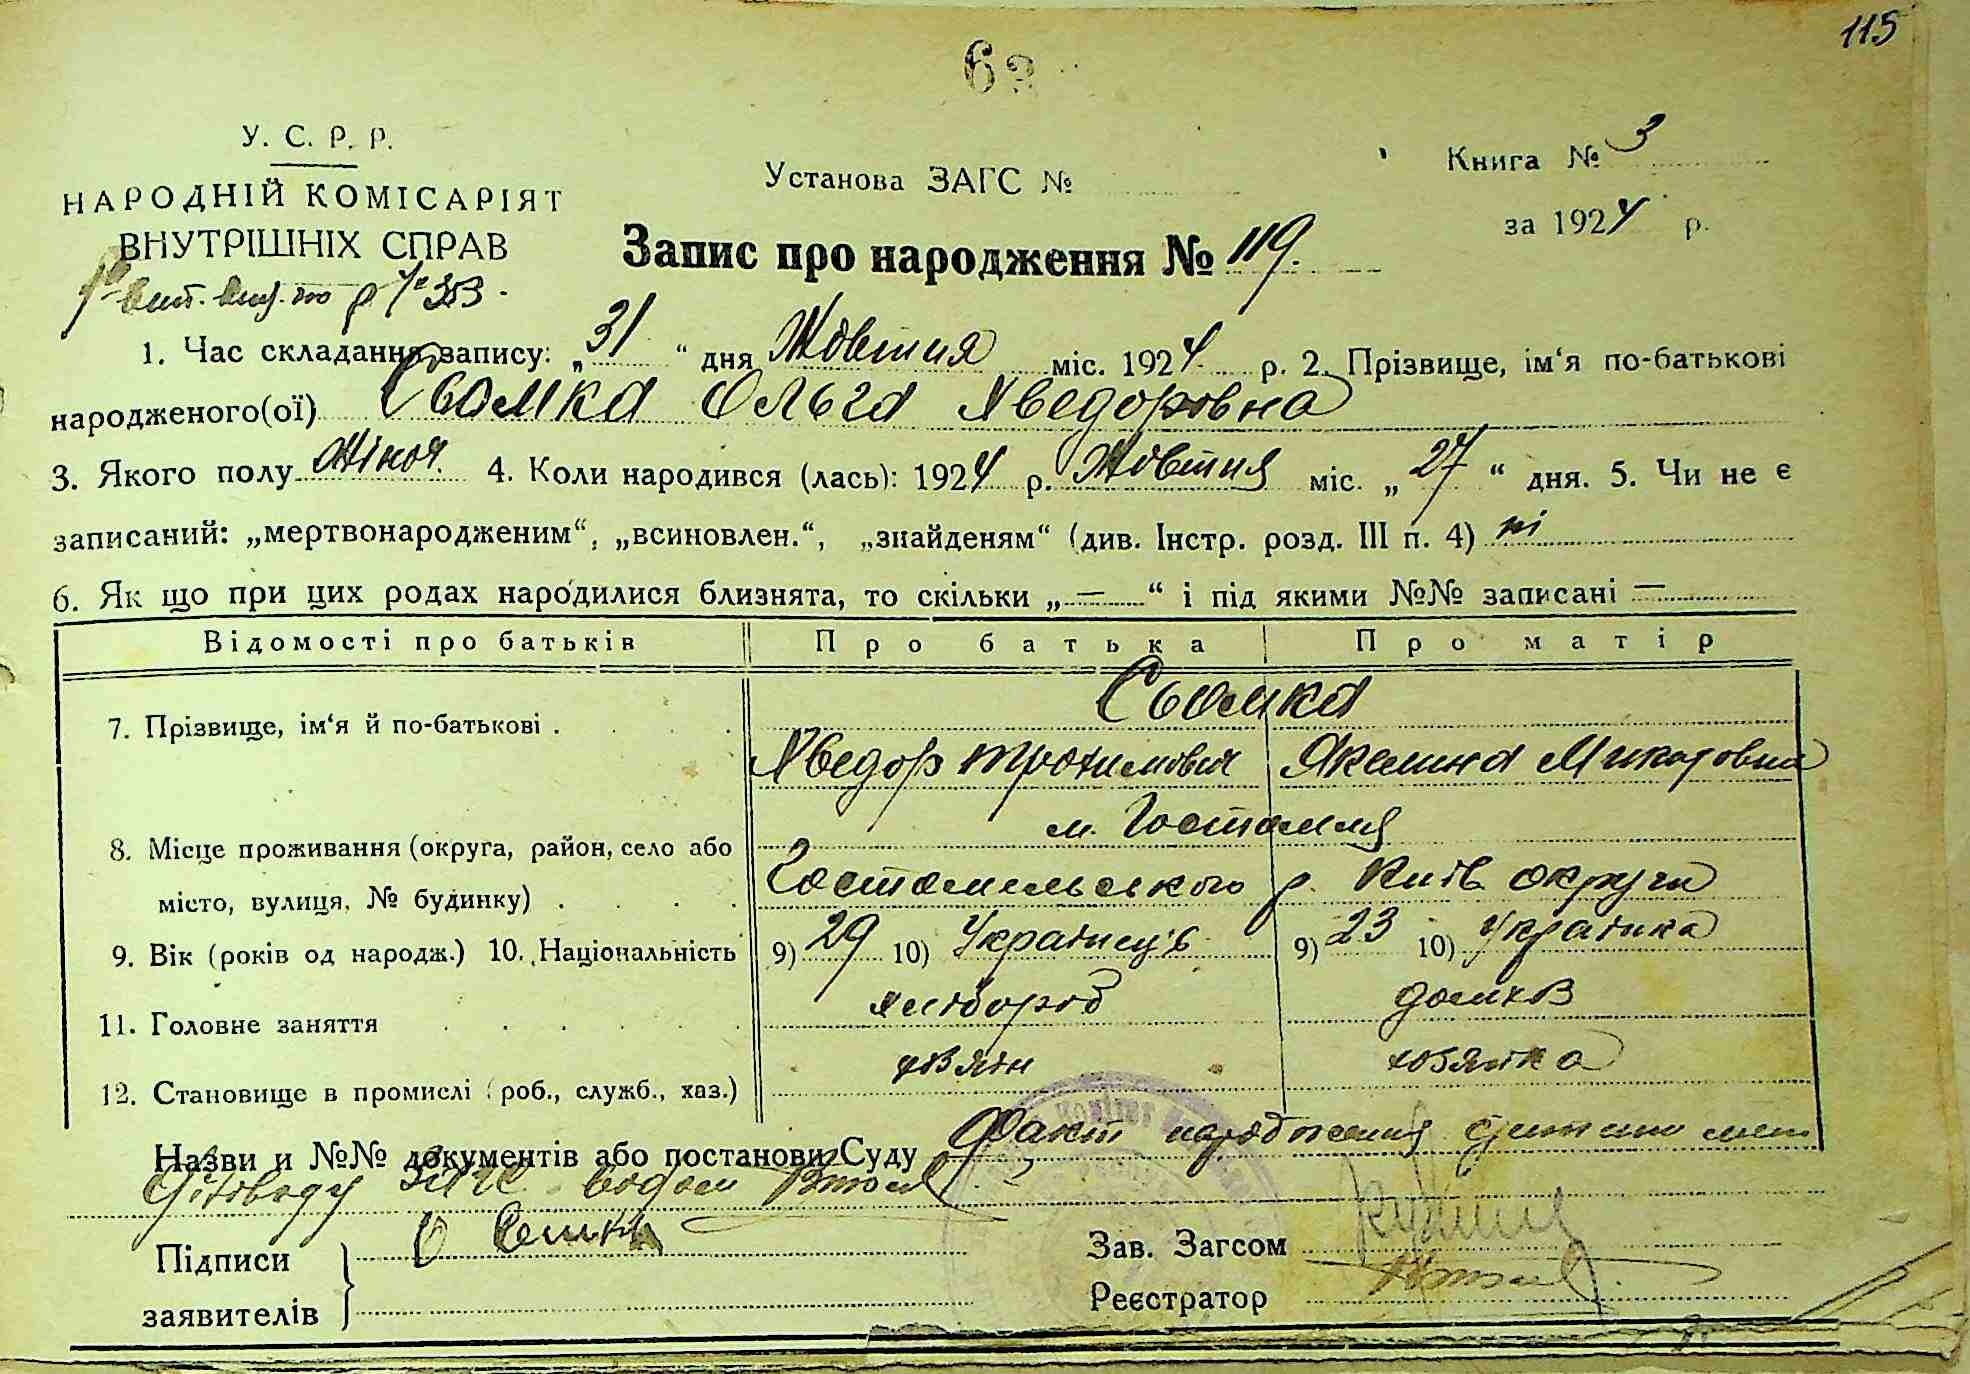 115
6
У. С. Р. Р.
НАРОДНІЙ КОМІСАРІЯТ
ВНУТРІШНІХ СПРАВ
Установа ЗАГС №
Книга № 3
за 1924 р.
Запис про народження № 119.
р № 353.
1. Час складання запису: „31“ дня Жовтня міс. 1924 р. 2. Прізвище, ім‘я по-батькові
народженого(ої) Сьомка Ольга Хведоровна
3. Якого полу Жіноч. 4. Коли народився (лась): 1924 р. Жовтня міс. „27“ дня. 5. Чи не є
записаний: „мертвонародженим“, „всиновлен.“, „знайденям“ (див. Інстр. розд. III п. 4) ні
6. Як що при цих родах народилися близнята, то скільки „—“ і під якими №№ записані —
Відомості про батьків Про батька Про матір
7. Прізвище, ім‘я й по-батькові . Сьомка
Хведор Трохимович Якелина Макаровна
8. Місце проживання (округа, район, село або м. Гостомля
місто, вулиця, № будинку) . Гостомельського р. Київ округи
9. Вік (років од народж.) 10. Національність 9) 29 10) Українець 9) 23 10) Українка
11. Головне заняття хлібороб домхоз
12. Становище в промислі (роб., служб., хаз.) хозяін хозяйка
Назви и №№ документів або постанови Суду Факт народження дитини мені
діловоду ЗАГС
Підписи
заявителів
Зав. Загсом
Реєстратор